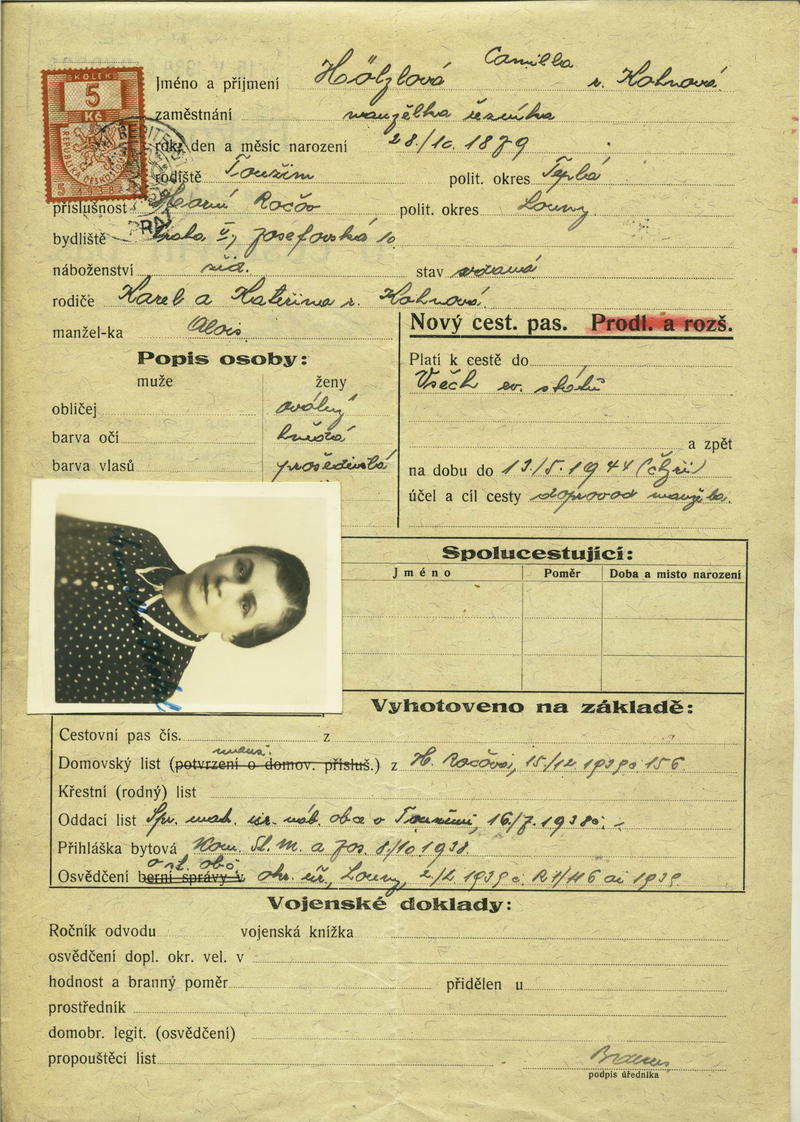 KOLEK
5
Kč
REPUBLIKA ČESKOSLOVENSKÁ
5 1938
PRAZ
Jméno a příjmení Hölzlová Camilla r. Kohnová
zaměstnání manželka řezníka
rok, den a měsíc narození 28./10. 1879
rodiště Toužim polit. okres Teplá
příslušnost Horní Ročov polit. okres Louny
bydliště Praha V, Josefovská 10
náboženství žid. stav vdaná
rodiče Karel a Kateřina r. Kohnová
manžel-ka Alois
Nový cest. pas. Prodl. a rozš.
Popis osoby:
muže ženy
obličej oválný
barva očí hnědá
barva vlasů prošedivělá
Platí k cestě do
Všech ev. států
a zpět
na dobu do 13/5. 1944 (čtyři)
účel a cíl cesty doprovod manžela.
Spolucestující:
Jméno Poměr Doba a místo narození
Vyhotoveno na základě:
Cestovní pas čís. z
Domovský list (potvrzení o domov. přísluš.) z H. Ročova, 15/12. 1939 č. 156
Křestní (rodný) list
Oddací list Spr. mat. isr. náb. obce v Toužimi, 16./7. 1938
Přihláška bytová Kom. Sl. M. a Jos. 8/10 1938.
Osvědčení berní správy v okr. úř., Louny, 2/2. 1939
Vojenské doklady:
Ročník odvodu vojenská knížka
osvědčení dopl. okr. vel. v
hodnost a branný poměr přidělen u
prostředník
domobr. legit. (osvědčení)
propouštěcí list
podpis úředníka